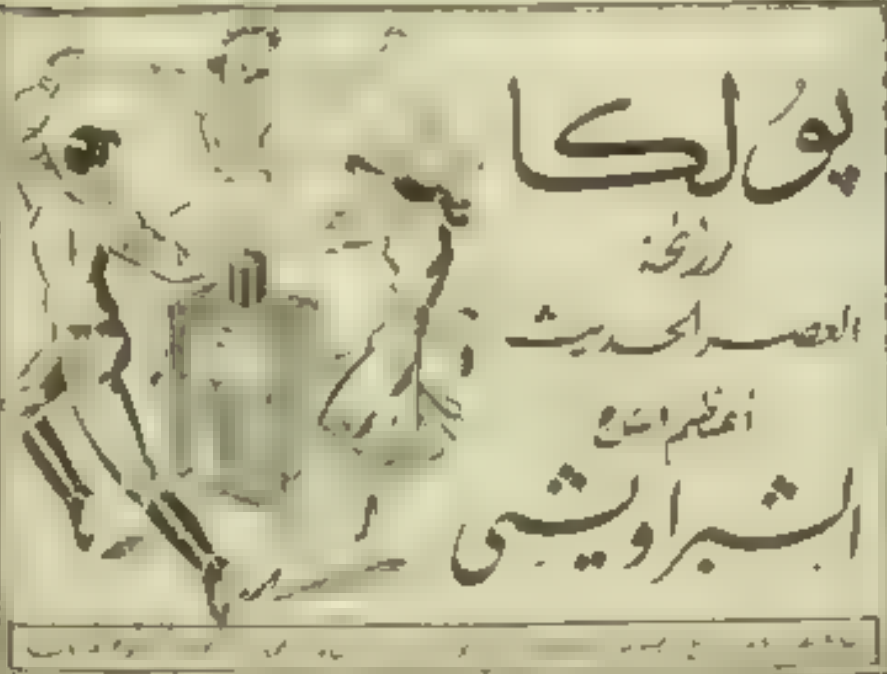 پولكا
رائحة
العصر الحديث
أعظم انتاج
الشبراويشى